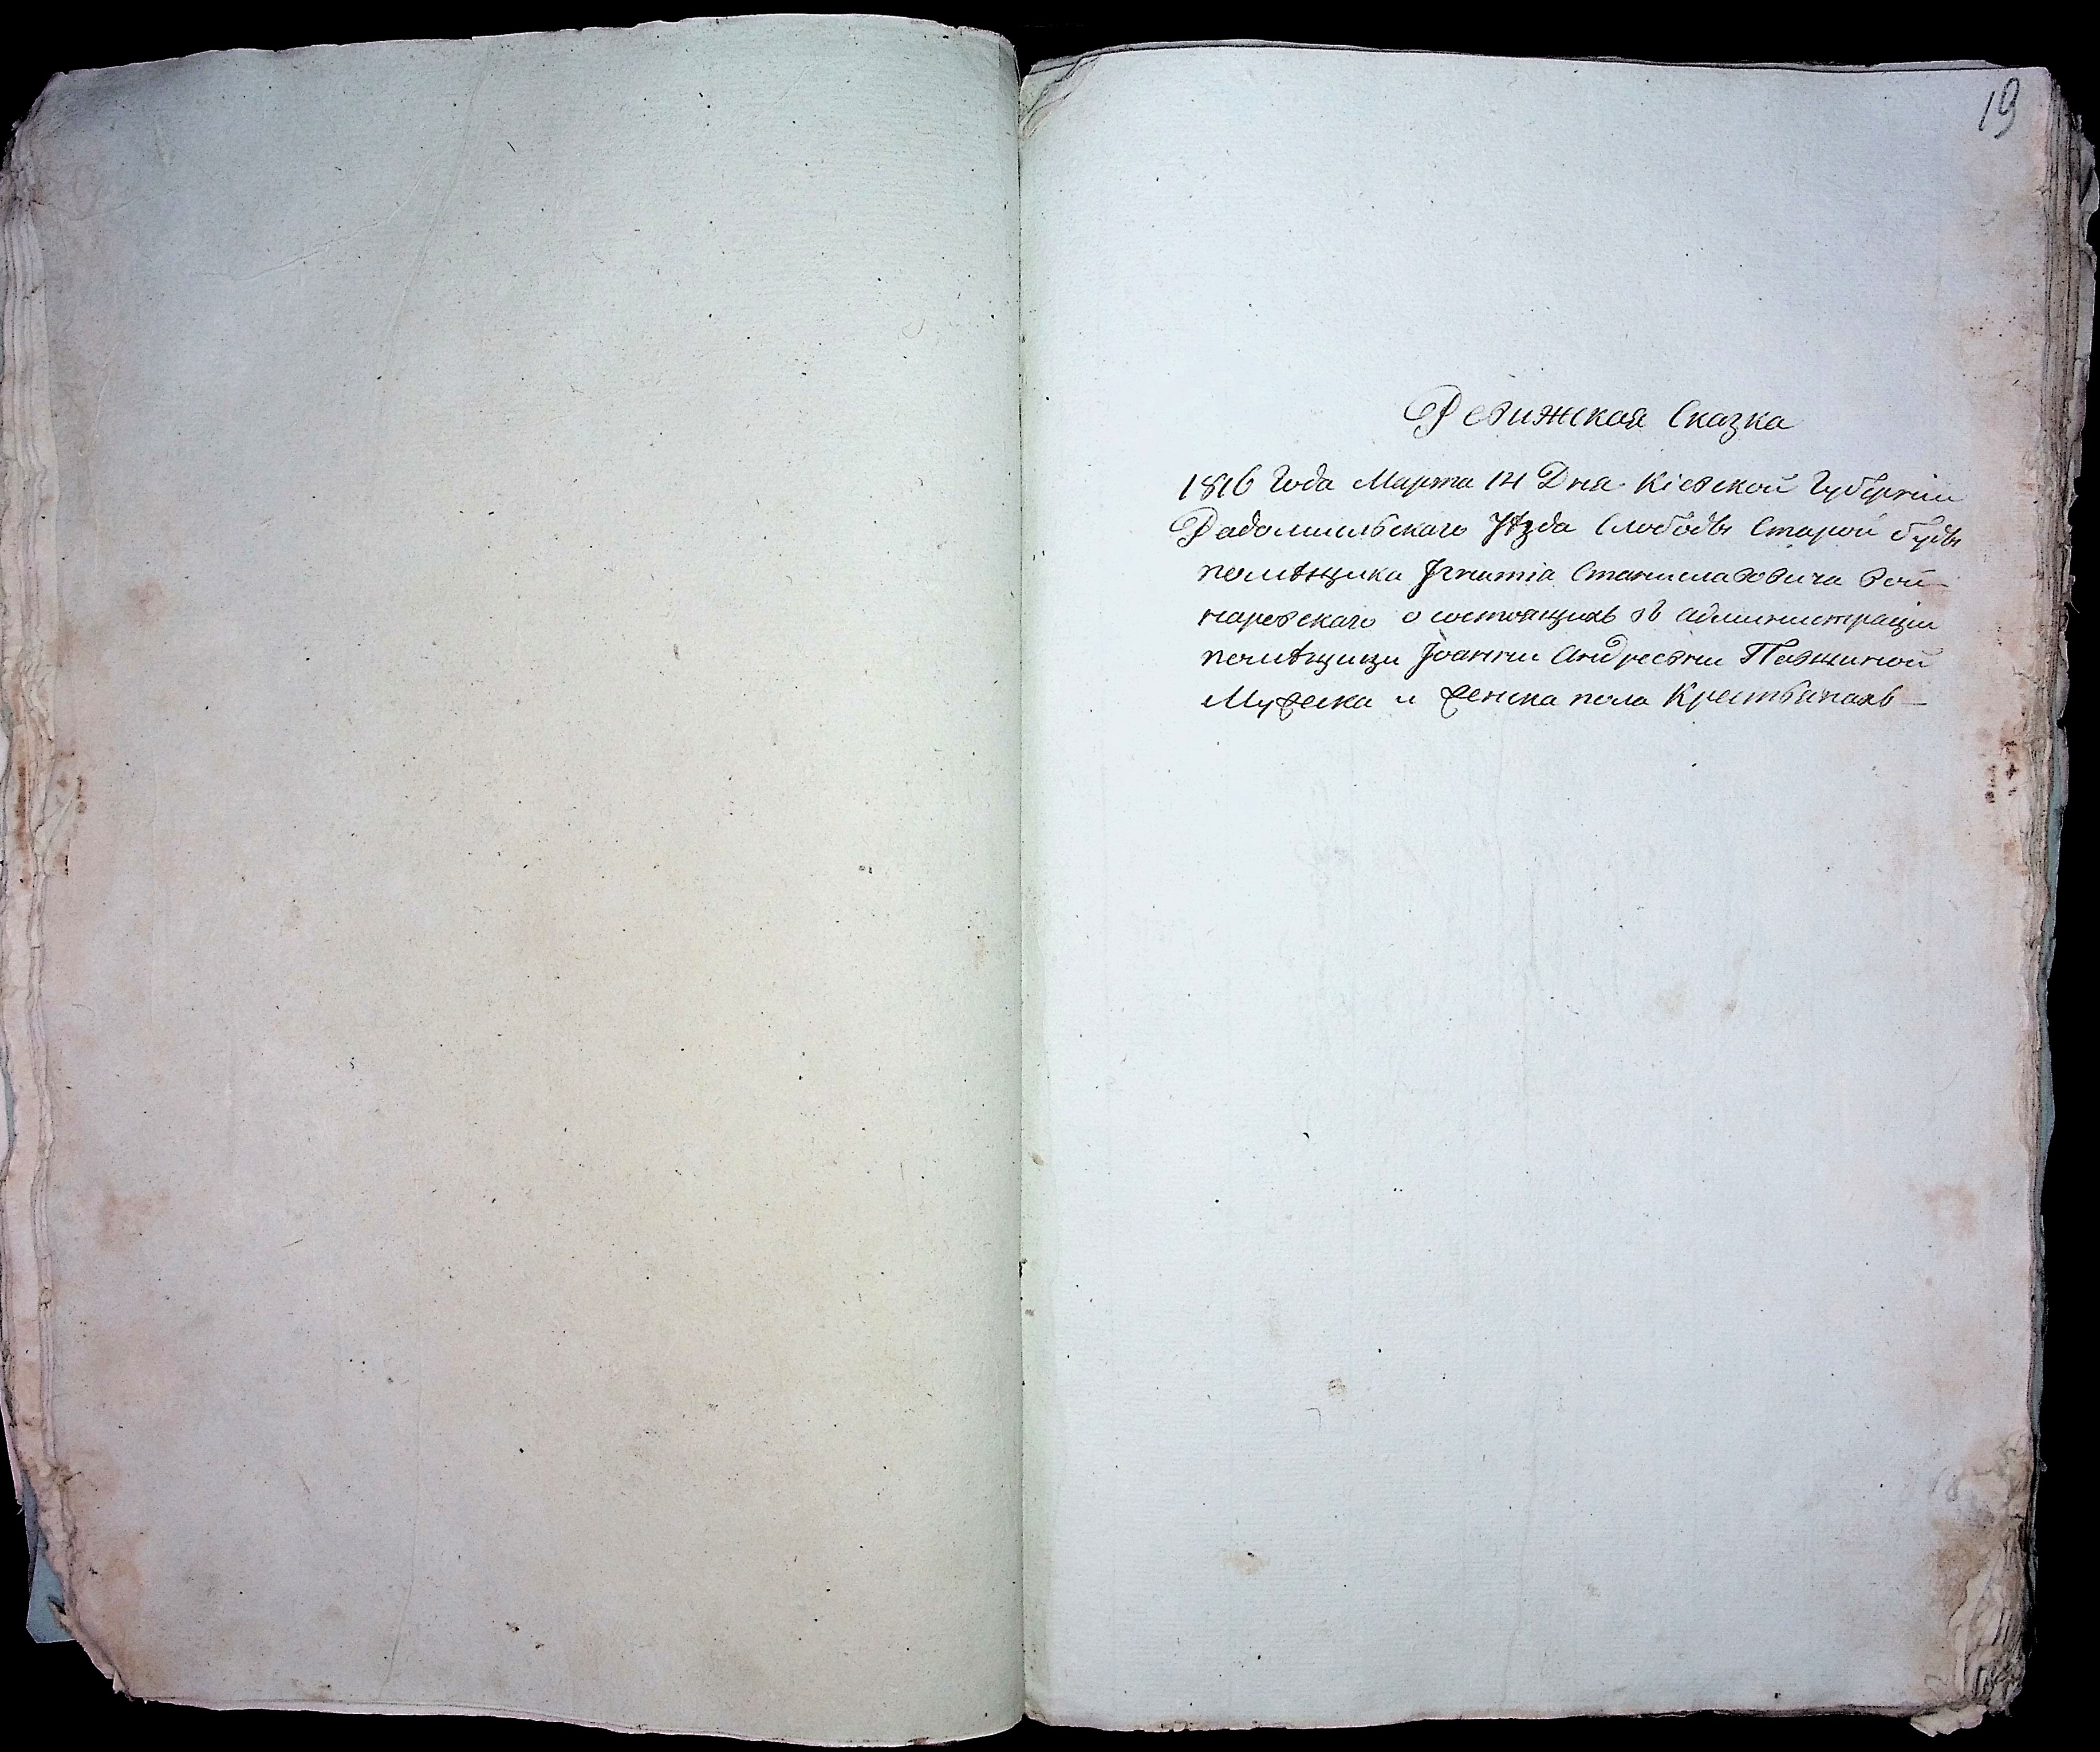 19
Ревижская Сказка
1816 Года Марта 14 Дня Кіевской Губерніи
Радомысльскаго Уѣзда Слободы Старой буды
помѣщика Игнатія Станиславовича Вой-
наровскаго о состоящихъ въ администраціи
помѣщици Іоанни Андреевни
Мужеска и женска пола Крестьянахъ